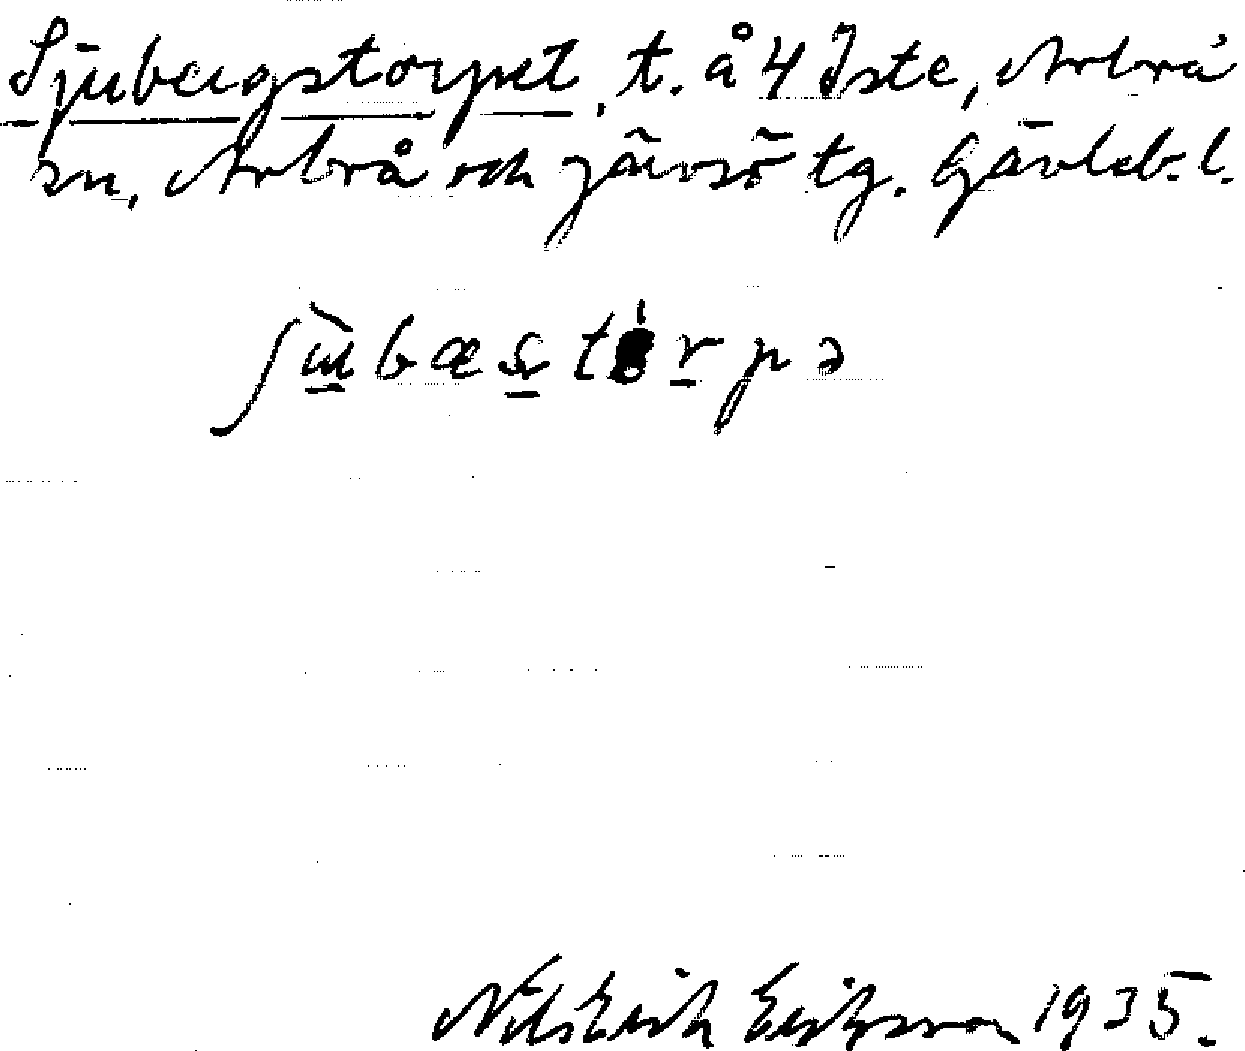 Sjubergstorpet, t. å 4 Iste, Arbrå
sn, Arbrå och Järvsö tg. Gävleb. l.
Nils Erik Eriksson 1935.